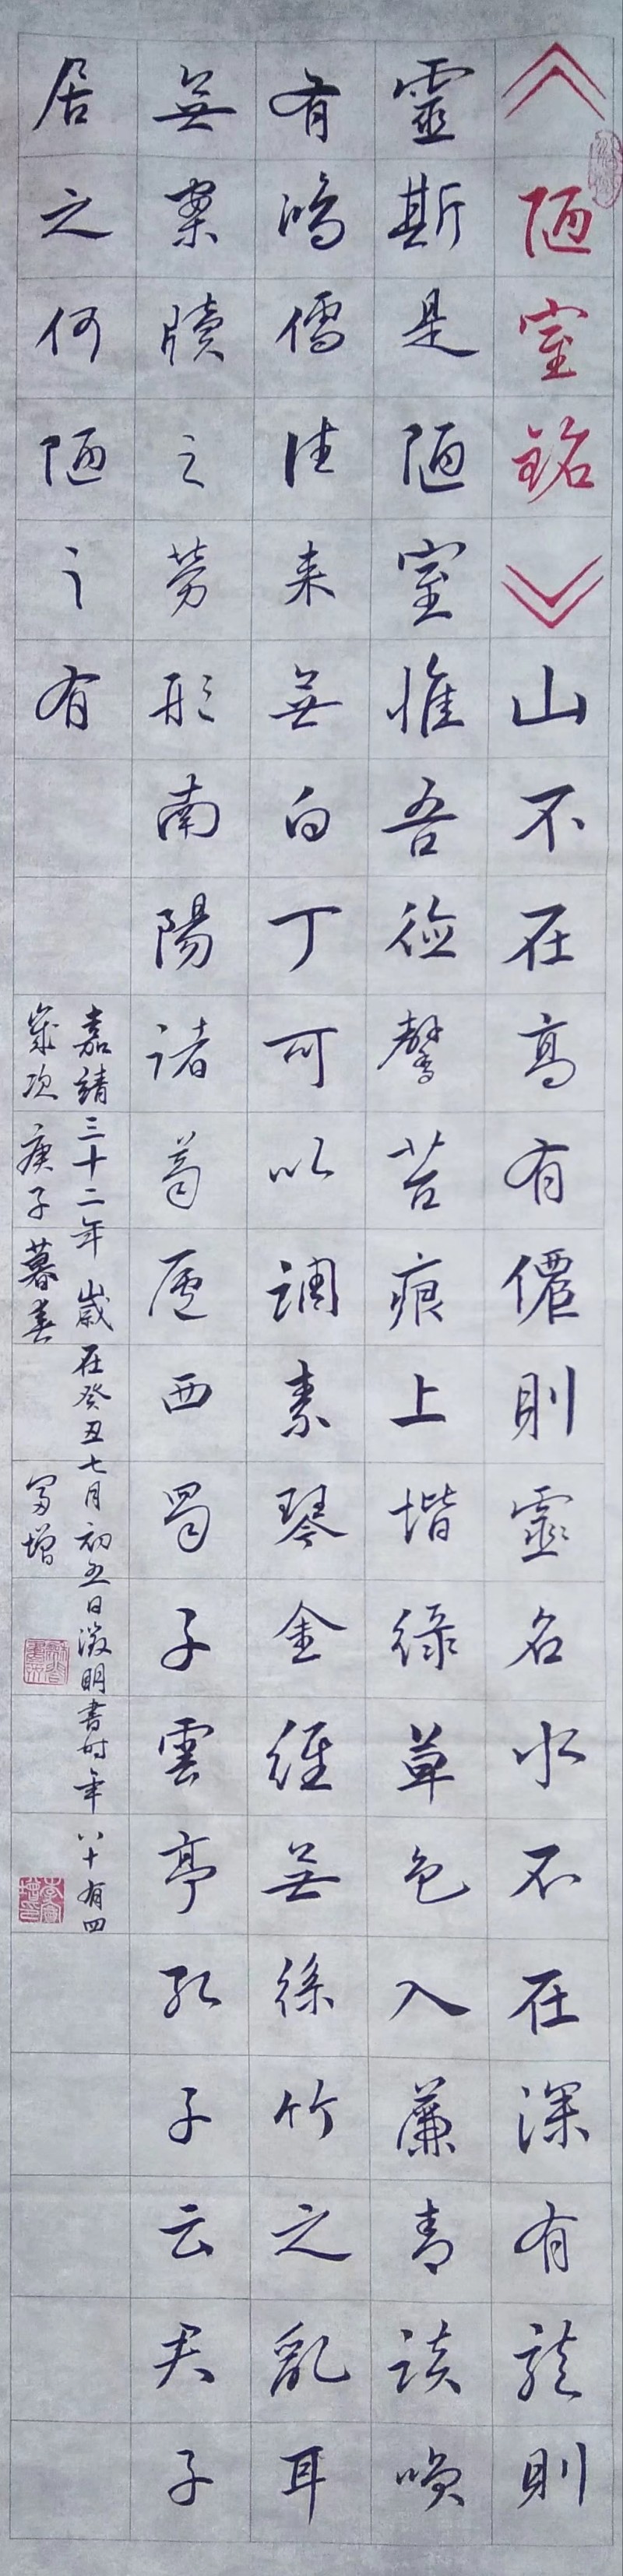 《陋室铭》山不在高有僊則靈名水不在深有龍則
靈斯是陋室惟吾德馨苔痕上堦緑草色入簾青談唤
有鴻儒往来無白丁可以調素琴金經無絲竹之亂耳
無案牘之勞形南陽諸葛廬西蜀子雲亭孔子云君子
居之何陋之有
嘉靖三十二年歲在癸丑七月初五日徵明書時年八十有四
歲次庚子暮春 寳增